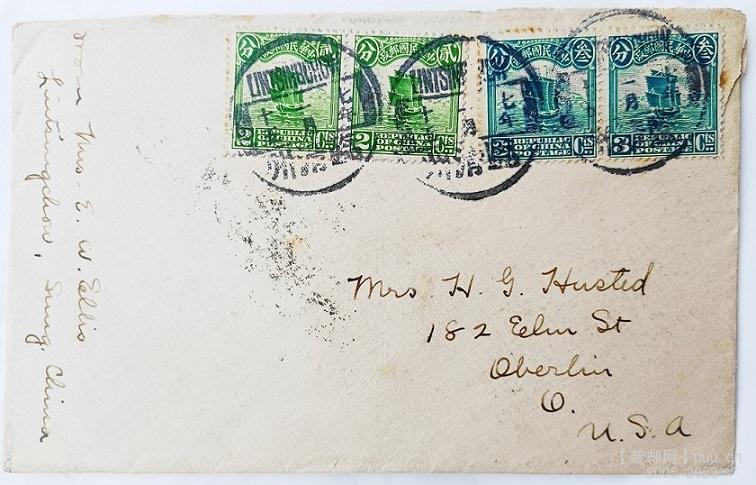 分 政郵國民華中 貳
2 REPUBLIC OF CHINA POSTAGE Cts
分 政郵國民華中 貳
2 REPUBLIC OF CHINA POSTAGE Cts
分 政郵國民華中 叁
3 REPUBLIC OF CHINA POSTAGE Cts
分 政郵國民華中 叁
3 REPUBLIC OF CHINA POSTAGE Cts
LINTSINGCHOW
From Mrs. E. W. Ellis
Lintsingchow, Sung, China
Mrs H. G. Husted
182 Eelm St
Oberlin
O.
U.S.A
puu.cn